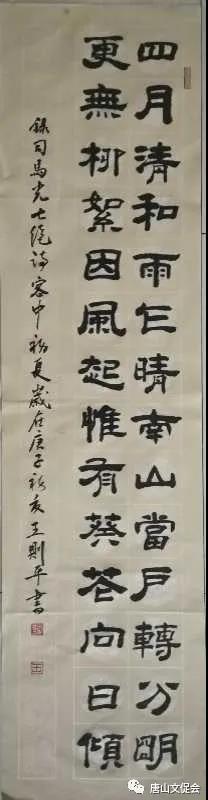 四月清和雨乍晴南山當戶轉分明
更無柳絮因風起惟有葵花向日傾
錄司馬光七絕詩客中初夏歲在庚子初夏王則平書
唐山文促会